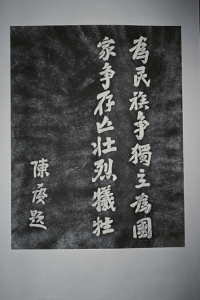 為民族争獨立為國
家争存亡壯烈犧牲
陳賡题